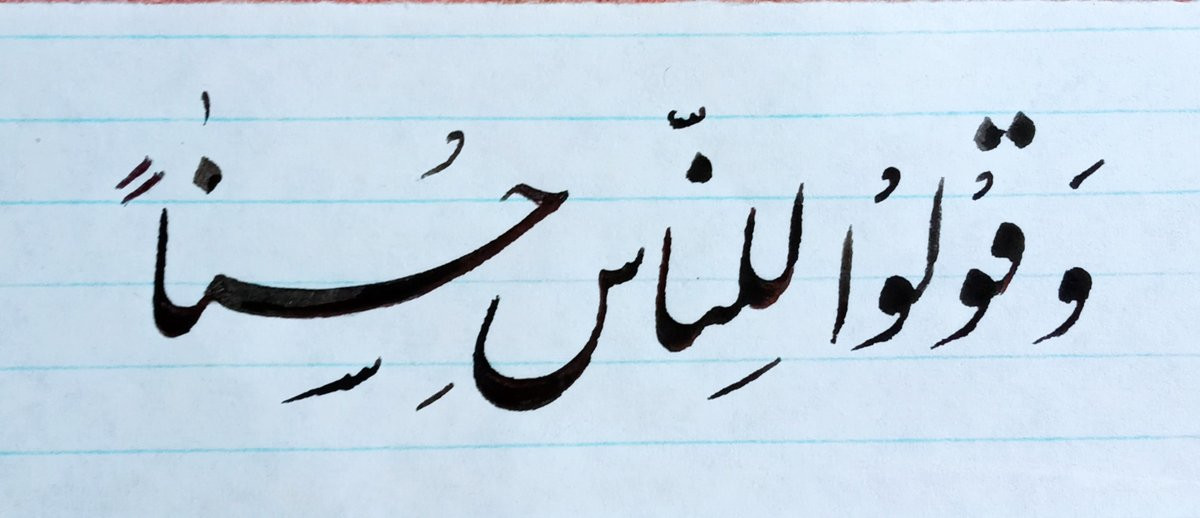 وَقُولُوا لِلنَّاسِ حُسْنًا